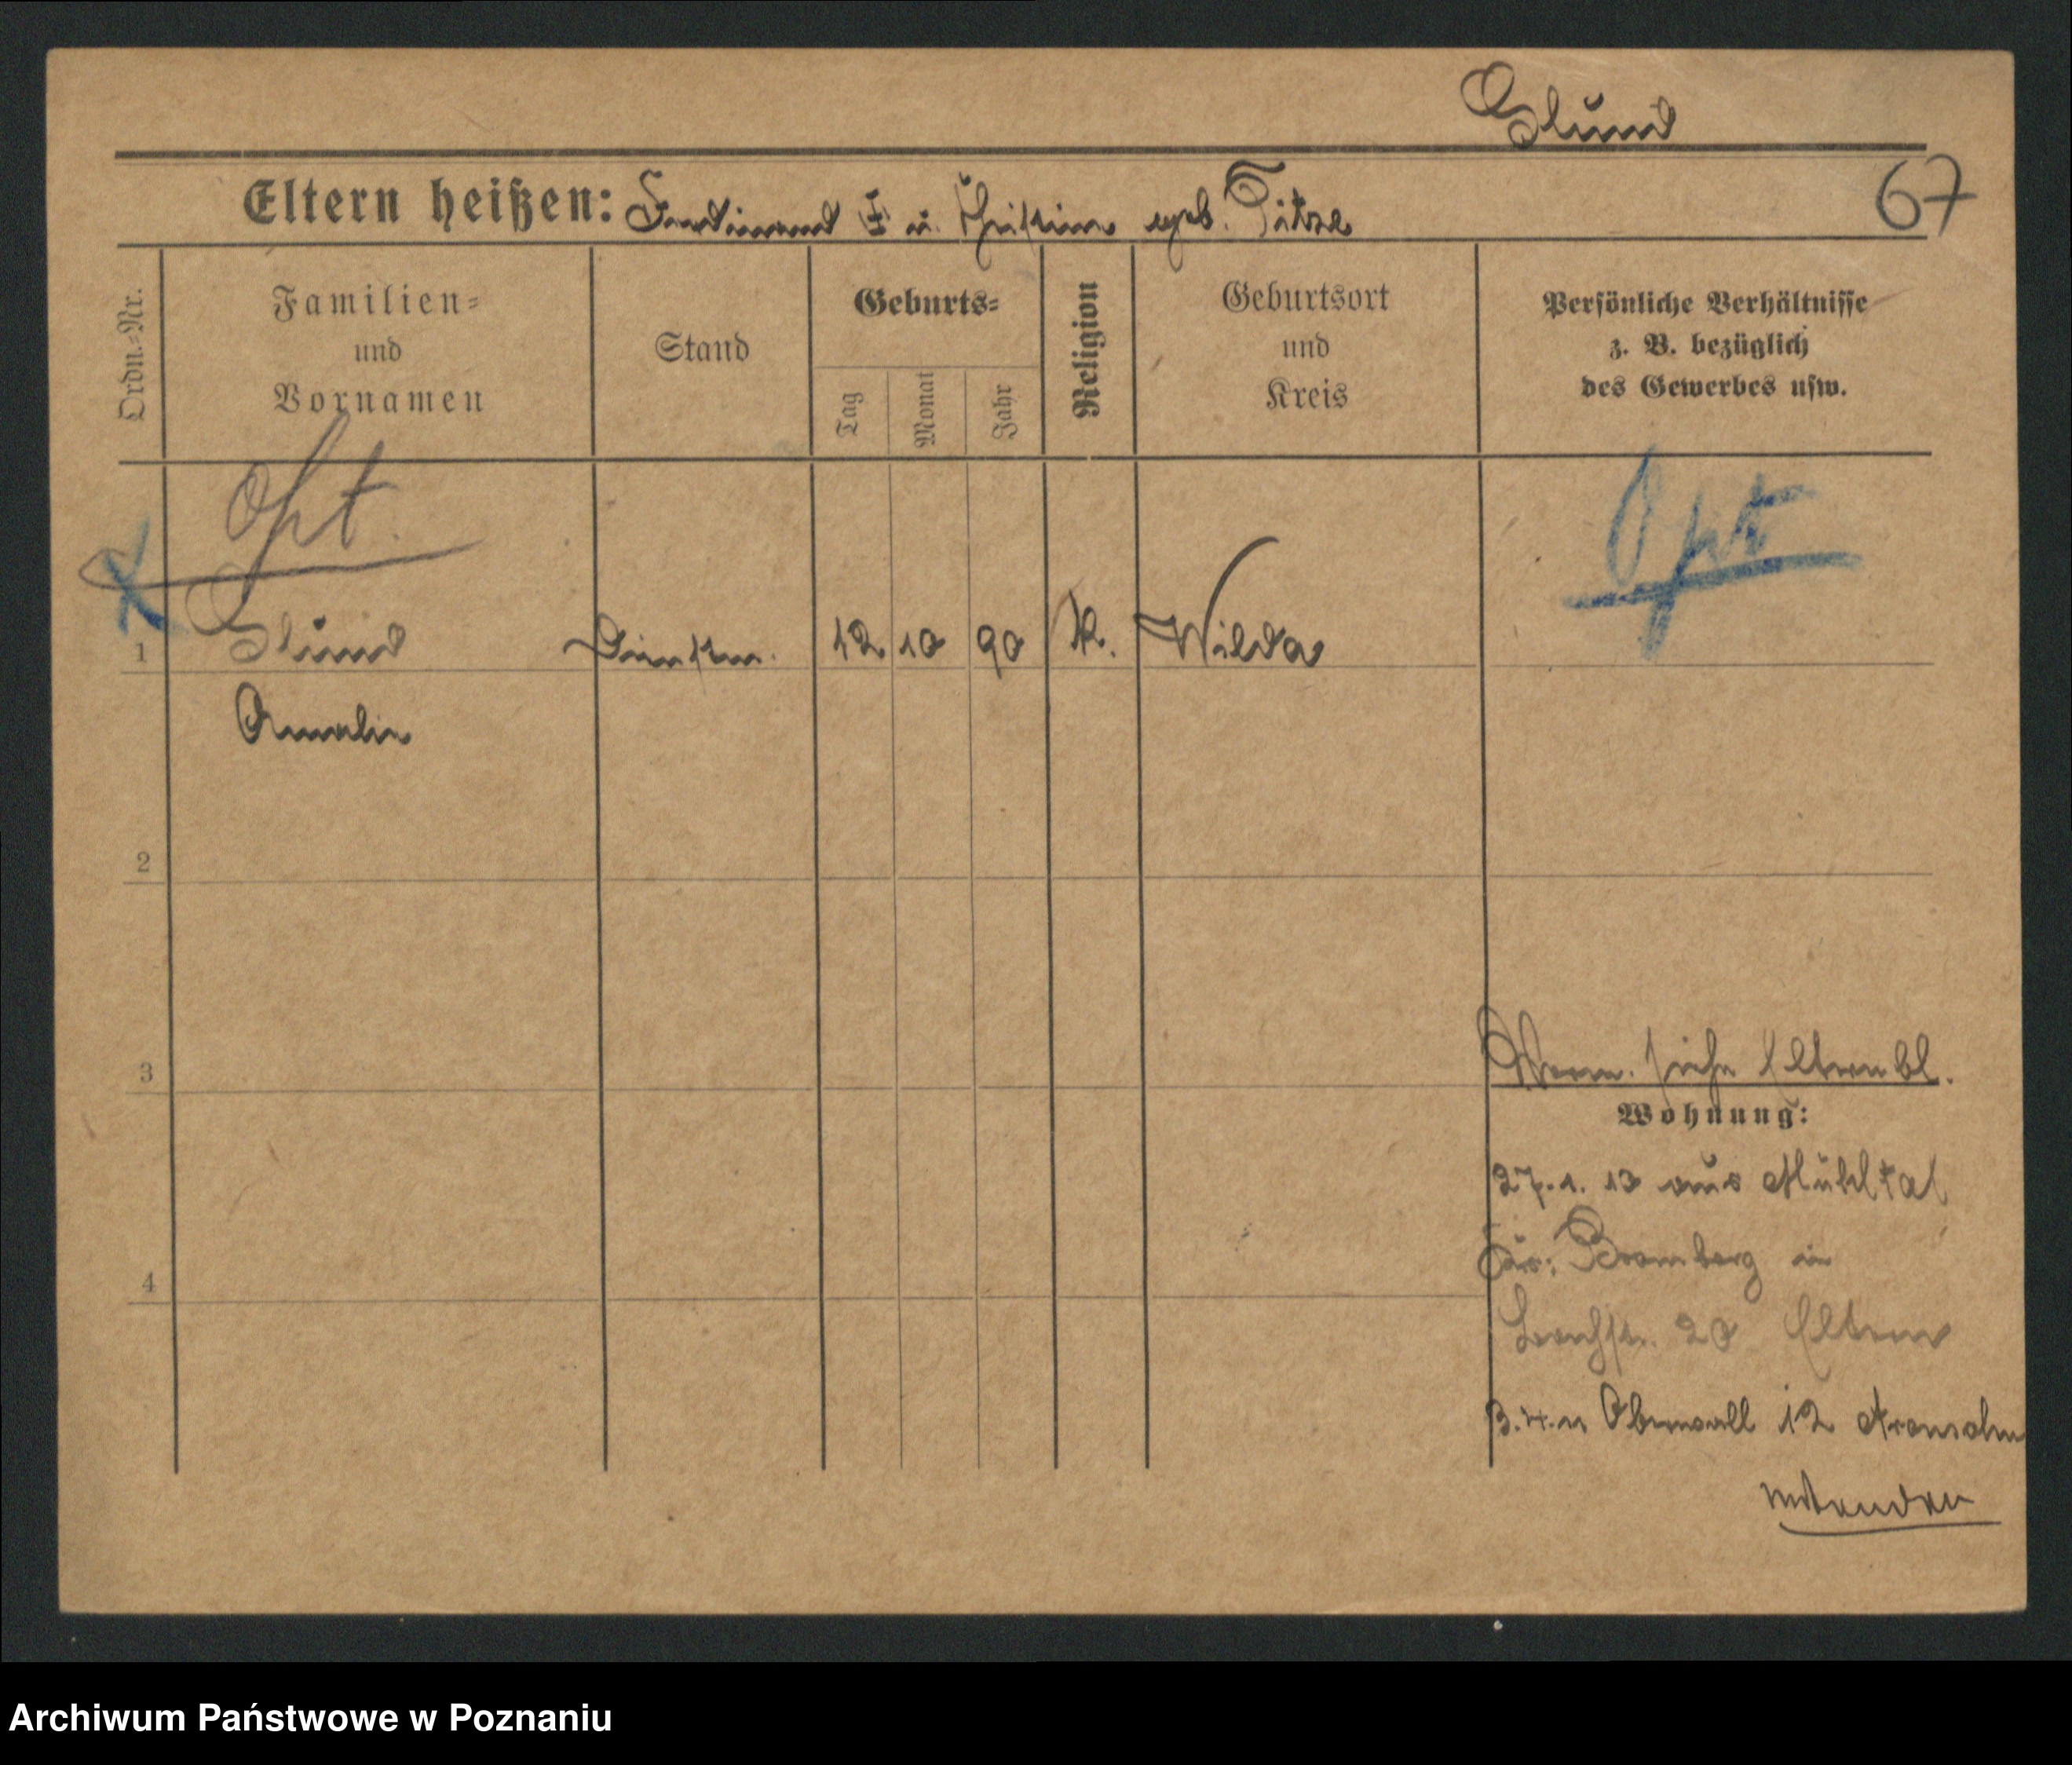 Glund
67
Eltern heißen: Ferdinand u. Christine geb. Titze
Ordn.-Nr.
Familien-
und
Vornamen
Stand
Geburts-
Tag
Monat
Jahr
Religion
Geburtsort
und
Kreis
Persönliche Verhältnisse
z. B. bezüglich
des Gewerbes usw.
Opt.
Opt
1 Glund Dienstm. 12 10 90 K. Wilda
Amalie
2
3
siehe Elternbl.
Wohnung:
27.1.13 aus Mühltal
Bromberg in
20 Eltern
3.4. Oberwall 12
4
Archiwum Państwowe w Poznaniu